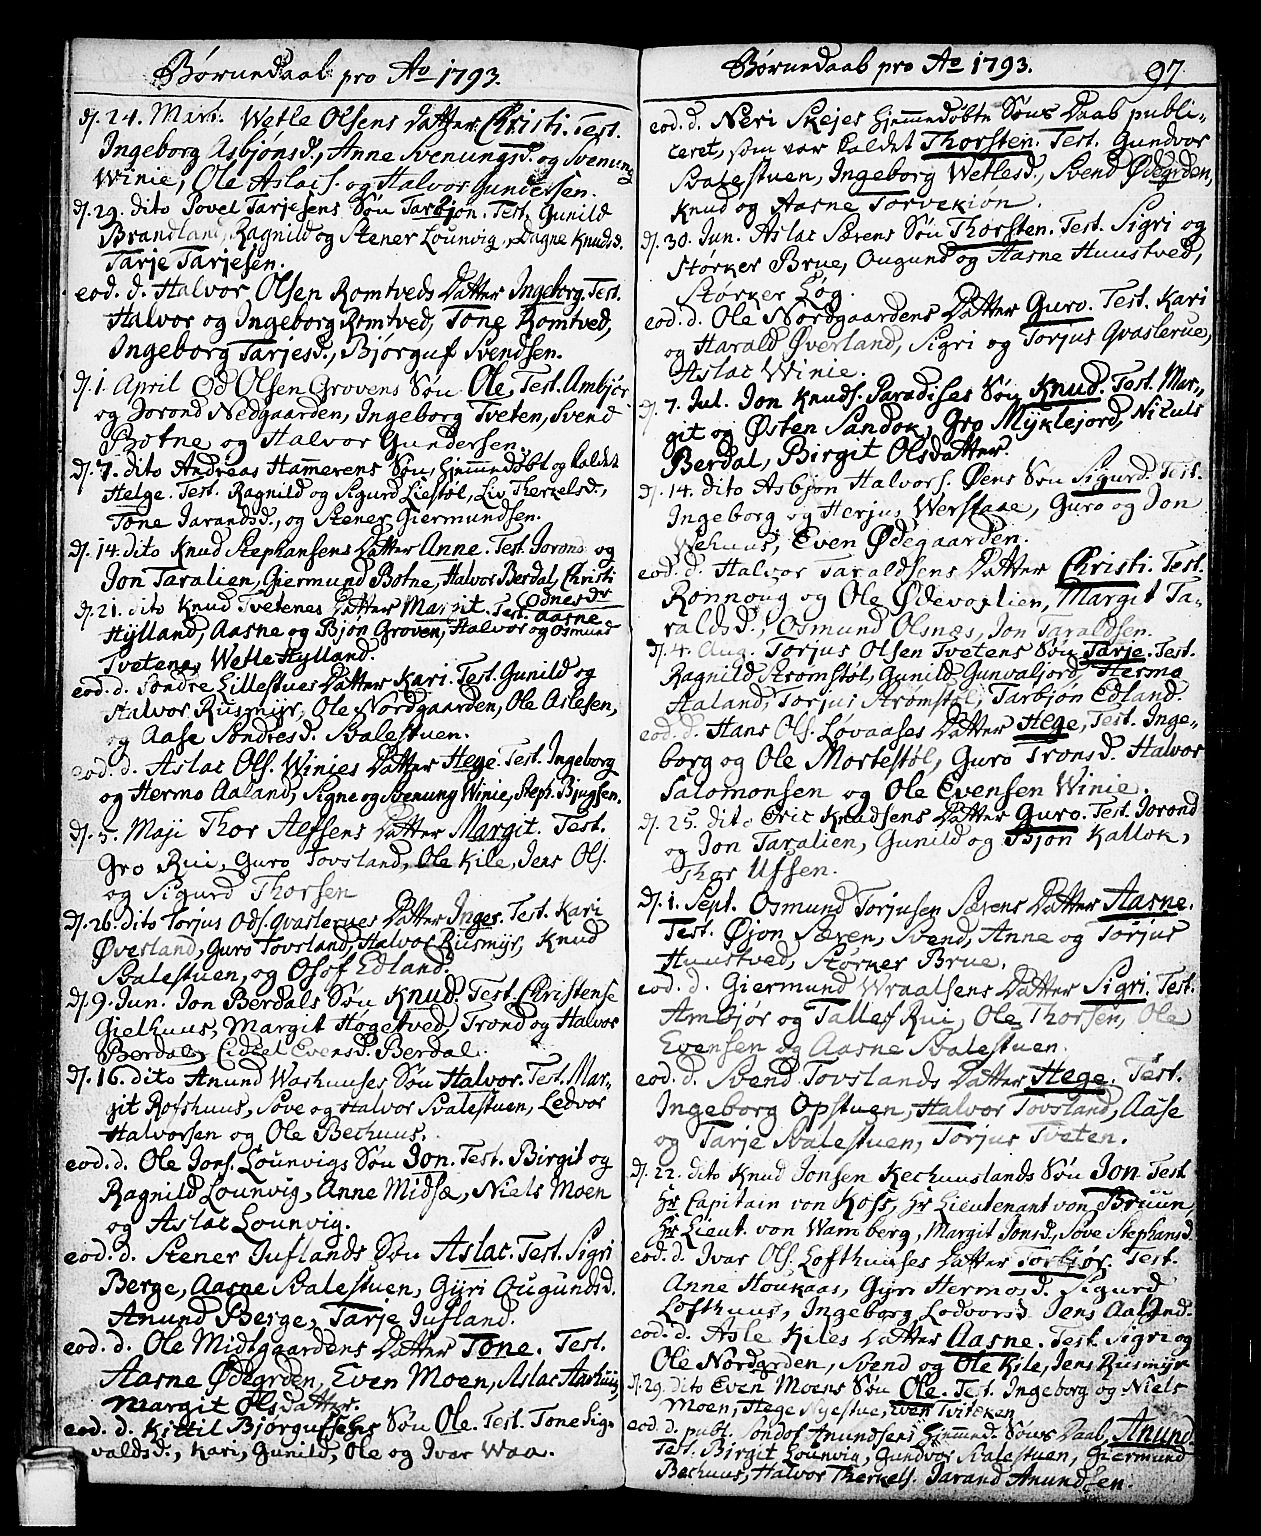 Børnedaab pro Ao 1793.
d. 24. Mart. Wetle Olsens Datter Christi. Test.
Ingeborg Asbjønsd., Anne Svenungsd. og Svenung
Winie, Ole Aslacs. og Halvor Gundersen.
d. 29. dito Povel Tarjesens Søn Tarbjøn. Test. Gunild
Brandland, Ragnild og Stener Lounvig, Dagne Knudsd.
Tarje Tarjesen.
eod. d. Halvor Olsen Romtveds Datter Ingeborg. Test.
Halvor og Ingeborg Romtved, Tone Romtved,
Ingeborg Tarjesd., Bjørguf Svendsen.
d. 1. April Od Olsen Grovens Søn Ole. Test. Ambjør
og Jorond Nedgaarden, Ingeborg Tveten, Svend
Botne og Halvor Gundersen.
d. 7. dito Andreas Hamerens Søn, hjemmedøbt og kaldet
Helge. Test. Ragnild og Sigurd Liestøl, Liv Therkelsd.,
Tone Jarandsd., og Stener Giermundsen.
d. 14. dito Knud Stephansens Datter Anne. Test. Jorond og
Jon Taralien, Giermund Botne, Halvor Berdal, Christi
Odnesdr
d. 21. dito Knud Tvetenes Datter Margit. Test. Aasne
Hylland, Aasne og Bjøn Groven, Halvor og Osmund
Tvetene, Wetle Hylland.
eod. d. Søndre Lillestues Datter Kari. Test. Gunild og
Halvor Rusmyr, Ole Nordgaarden, Ole Aslesen,
og Aase Søndresd. Balestuen.
eod. d. Aslac Ols. Winies Datter Hege. Test. Ingeborg
og Hermo Aaland, Signe og Svenung Winie, Steph. Bjugsen.
d. 5. Maji Thor Alfsens Datter Margit. Test.
Gro Rui, Guro Tovsland, Ole Kile, Jens Ols.
og Sigurd Thorsen
d. 26. dito Torjus Ods. Qvaslerues Datter Inger. Test. Kari
Øverland, Guro Tovsland, Halvor Rusmyr, Knud
Balestuen, og Osof Edland.
d. 9. Jun. Jon Berdals Søn Knud. Test. Christense
Gielhuus, Margit Høgetved, Trond og Halvor
Berdal, Eidiel Evensd. Berdal.
d. 16. dito Anund Washuuses Søn Halvor. Test. Mar-
git Rofshuus, Søve og Halvor Balestuen, Ledvor
Halvorsen og Ole Bechuus.
eod. d. Ole Jons. Lounvigs Søn Jon. Test. Birgit og
Ragnild Lounvig, Anne Midsæ, Niels Moen
og Aslac Lounvig.
eod. d. Stener Juflands Søn Aslac. Test. Sigri
Berge, Aasne Balestuen, Gyri Ougundsd.
Anund Berge, Tarje Jufland.
eod. d. Ole Midtgaardens Datter Tone. Test.
Aasne Ødegrden, Even Moen, Aslac Aashuus,
Margit Olsdatter.
eod. d. Kittil Bjørgufsens Søn Ole. Test. Tone Sig-
valdsd., Kari, Gunild, Ole og Ivar Waa.
Børnedaab pro Ao 1793. 97
eod. d. Neri Skejes hjemmedøbte Søns Daab publi-
ceret, som var kaldet Thorsten. Test. Gundvor
Balestuen, Ingeborg Wetlesd., Svend Ødegrden,
Knud og Aasne Torvekiøn.
d. 30. Jun. Aslac Særens Søn Thorsten. Test. Sigri og
Størker Brue, Ougund og Aasne Huustved,
Størker Løg.
eod. d. Ole Nordgaardens Datter Guro. Test. Kari
og Harald Øverland, Sigri og Torjus Qvaslerue,
Aslac Winie.
d. 7. Jul. Jon Knuds. Paradises Søn Knud. Test. Mar-
git og Østen Sandok, Gro Myklejord, Niculs
Berdal, Birgit Olsdatter.
d. 14. dito Asbjøn Halvors. Øens Søn Sigurd. Test.
Ingeborg og Herjus Werstaae, Guro og Jon
Wehuus, Even Ødegaarden.
eod. d. Halvor Taraldsens Datter Christi. Test.
Ronnoug og Ole Ødevaslien, Margit Ta-
raldsd., Osmund Olsnæs, Jon Taraldsen.
d. 4. Aug. Torjus Olsen Tvetens Søn Tarje. Test.
Ragnild Strømstøl, Gunild Gunvaljord, Hermo
Aaland, Torjus Strømstøl, Tarbjøn Edland.
eod. d. Hans Ols. Løvaases Datter Hege, Test. Inge-
borg og Ole Mortestøl, Guro Tronsd. Halvor
Salomonsen og Ole Evensen Winie.
d. 25. dito Eric Knudsens Datter Guro. Test. Jorond
og Jon Taralien, Gunild og Bjøn Kallok,
Thor Ufsen.
d. 1. Sept. Osmund Torjusen Særens Datter Aasne.
Test. Øjon Særen, Svend, Anne og Torjus
Huustved, Størker Brue.
eod. d. Giermund Wraalsens Datter Sigri. Test.
Ambjør og Tallef Rui, Ole Thorsen, Ole
Evensen og Aasne Balestuen.
eod. d. Svend Tovslands Datter Hege. Test.
Ingeborg Opstuen, Halvor Tovsland, Aase
og Tarje Balestuen, Torjus Tveten.
d. 22. dito Knud Jonsen Kechuuslands Søn Jon. Test
Hr Capitain von Koss, Hr Lieutenant von Bruun,
Hr Lieut. von Wamberg, Margit Jonsd., Søve Stephansd.
eod. d. Ivar Ols. Lofthuuses Datter Torbjør. Test.
Anne Houkaas, Gyri Hermosd. Sigurd
Lofthuus, Ingeborg Ledvorsd. Jens Aaland.
eod. d. Asle Kiles Datter Aasne. Test. Sigri og
Ole Nordgrden, Svend og Ole Kile, Jens Rusmyr
d. 29. dito Even Moens Søn Ole. Test. Ingeborg og Niels
Moen, Hege Nyestue, Even Tviteken
eod. d. publ. Sondof Anundsens hjemmed. Søns Daab, Anund.
Test. Birgit Lounvig, Gundvor Balestuen, Giermund
Bechuus, Halvor Therkels. Jarand Anundsen.